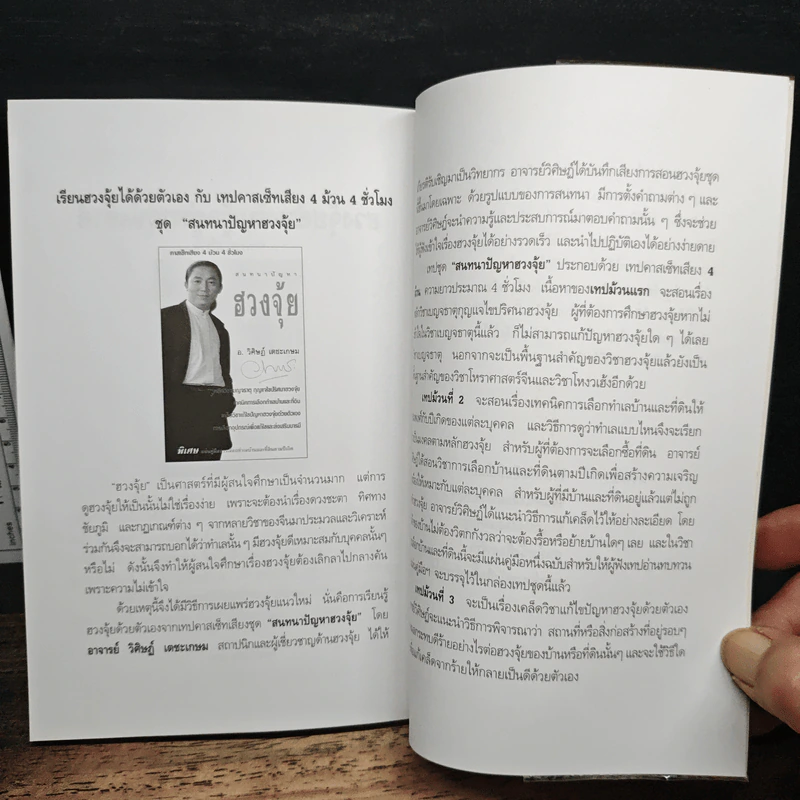 เรียนฮวงจุ้ยได้ด้วยตัวเอง กับ เทปคาสเซ็ทเสียง 4 ม้วน 4 ชั่วโมง
ชุด "สนทนาปัญหาฮวงจุ้ย"
คาสเซ็ทเสียง 4 ม้วน 4 ชั่วโมง
สนทนาปัญหา
ฮวงจุ้ย
อ. วิศิษฎ์ เตชะเกษม
พิเศษ
"ฮวงจุ้ย" เป็นศาสตร์ที่มีผู้สนใจศึกษาเป็นจำนวนมาก แต่การ
ดูฮวงจุ้ยให้เป็นนั้นไม่ใช่เรื่องง่าย เพราะจะต้องนำเรื่องดวงชะตา ทิศทาง
ชัยภูมิ และกฎเกณฑ์ต่าง ๆ จากหลายวิชาของจีนมาประมวลและวิเคราะห์
ร่วมกันจึงจะสามารถบอกได้ว่าทำเลนั้น ๆ มีฮวงจุ้ยดีเหมาะสมกับบุคคลนั้นๆ
หรือไม่ ดังนั้นจึงทำให้ผู้สนใจศึกษาเรื่องฮวงจุ้ยต้องเลิกลาไปกลางคัน
เพราะความไม่เข้าใจ
ด้วยเหตุนี้จึงได้มีวิธีการเผยแพร่ฮวงจุ้ยแนวใหม่ นั่นคือการเรียนรู้
ฮวงจุ้ยด้วยตัวเองจากเทปคาสเซ็ทเสียงชุด "สนทนาปัญหาฮวงจุ้ย" โดย
อาจารย์ วิศิษฎ์ เตชะเกษม สถาปนิกและผู้เชี่ยวชาญด้านฮวงจุ้ย ได้ให้
เกียรติรับเชิญมาเป็นวิทยากร อาจารย์วิศิษฎ์ได้บันทึกเสียงการสอนฮวงจุ้ยชุด
ขึ้นมาโดยเฉพาะ ด้วยรูปแบบของการสนทนา มีการตั้งคำถามต่าง ๆ และ
อาจารย์วิศิษฎ์จะนำความรู้และประสบการณ์มาตอบคำถามนั้น ๆ ซึ่งจะช่วย
ให้ผู้ฟังเข้าใจเรื่องฮวงจุ้ยได้อย่างรวดเร็ว และนำไปปฏิบัติเองได้อย่างง่ายดาย
เทปชุด "สนทนาปัญหาฮวงจุ้ย" ประกอบด้วย เทปคาสเซ็ทเสียง 4
ม้วน ความยาวประมาณ 4 ชั่วโมง เนื้อหาของเทปม้วนแรก จะสอนเรื่อง
วิชาเบญจธาตุกุญแจไขปริศนาฮวงจุ้ย ผู้ที่ต้องการศึกษาฮวงจุ้ยหากไม่
เข้าใจในวิชาเบญจธาตุนี้แล้ว ก็ไม่สามารถแก้ปัญหาฮวงจุ้ยใด ๆ ได้เลย
เบญจธาตุ นอกจากจะเป็นพื้นฐานสำคัญของวิชาฮวงจุ้ยแล้วยังเป็น
พื้นฐานสำคัญของวิชาโหราศาสตร์จีนและวิชาโหงวเฮ้งอีกด้วย
เทปม้วนที่ 2 จะสอนเรื่องเทคนิคการเลือกทำเลบ้านและที่ดินให้
กับปีเกิดของแต่ละบุคคล และวิธีการดูว่าทำเลแบบไหนจึงจะเรียก
มงคลตามหลักฮวงจุ้ย สำหรับผู้ที่ต้องการจะเลือกซื้อที่ดิน อาจารย์
ได้สอนวิชาการเลือกบ้านและที่ดินตามปีเกิดเพื่อสร้างความเจริญ
ให้เหมาะกับแต่ละบุคคล สำหรับผู้ที่มีบ้านและที่ดินอยู่แล้วแต่ไม่ถูก
ฮวงจุ้ย อาจารย์วิศิษฎ์ได้แนะนำวิธีการแก้เคล็ดไว้ให้อย่างละเอียด โดย
บ้านไม่ต้องวิตกกังวลว่าจะต้องรื้อหรือย้ายบ้านใดๆ เลย และในวิชา
เลือกบ้านและที่ดินนี้จะมีแผ่นคู่มือหนึ่งฉบับสำหรับให้ผู้ฟังเทปอ่านทบทวน
คู่มือฯ จะบรรจุไว้ในกล่องเทปชุดนี้แล้ว
เทปม้วนที่ 3 จะเป็นเรื่องเคล็ดวิชาแก้ไขปัญหาฮวงจุ้ยด้วยตัวเอง
วิศิษฎ์จะแนะนำวิธีการพิจารณาว่า สถานที่หรือสิ่งก่อสร้างที่อยู่รอบๆ
กระทบดีร้ายอย่างไรต่อฮวงจุ้ยของบ้านหรือที่ดินนั้นๆ และจะใช้วิธีใด
แก้เคล็ดจากร้ายให้กลายเป็นดีด้วยตัวเอง
inches